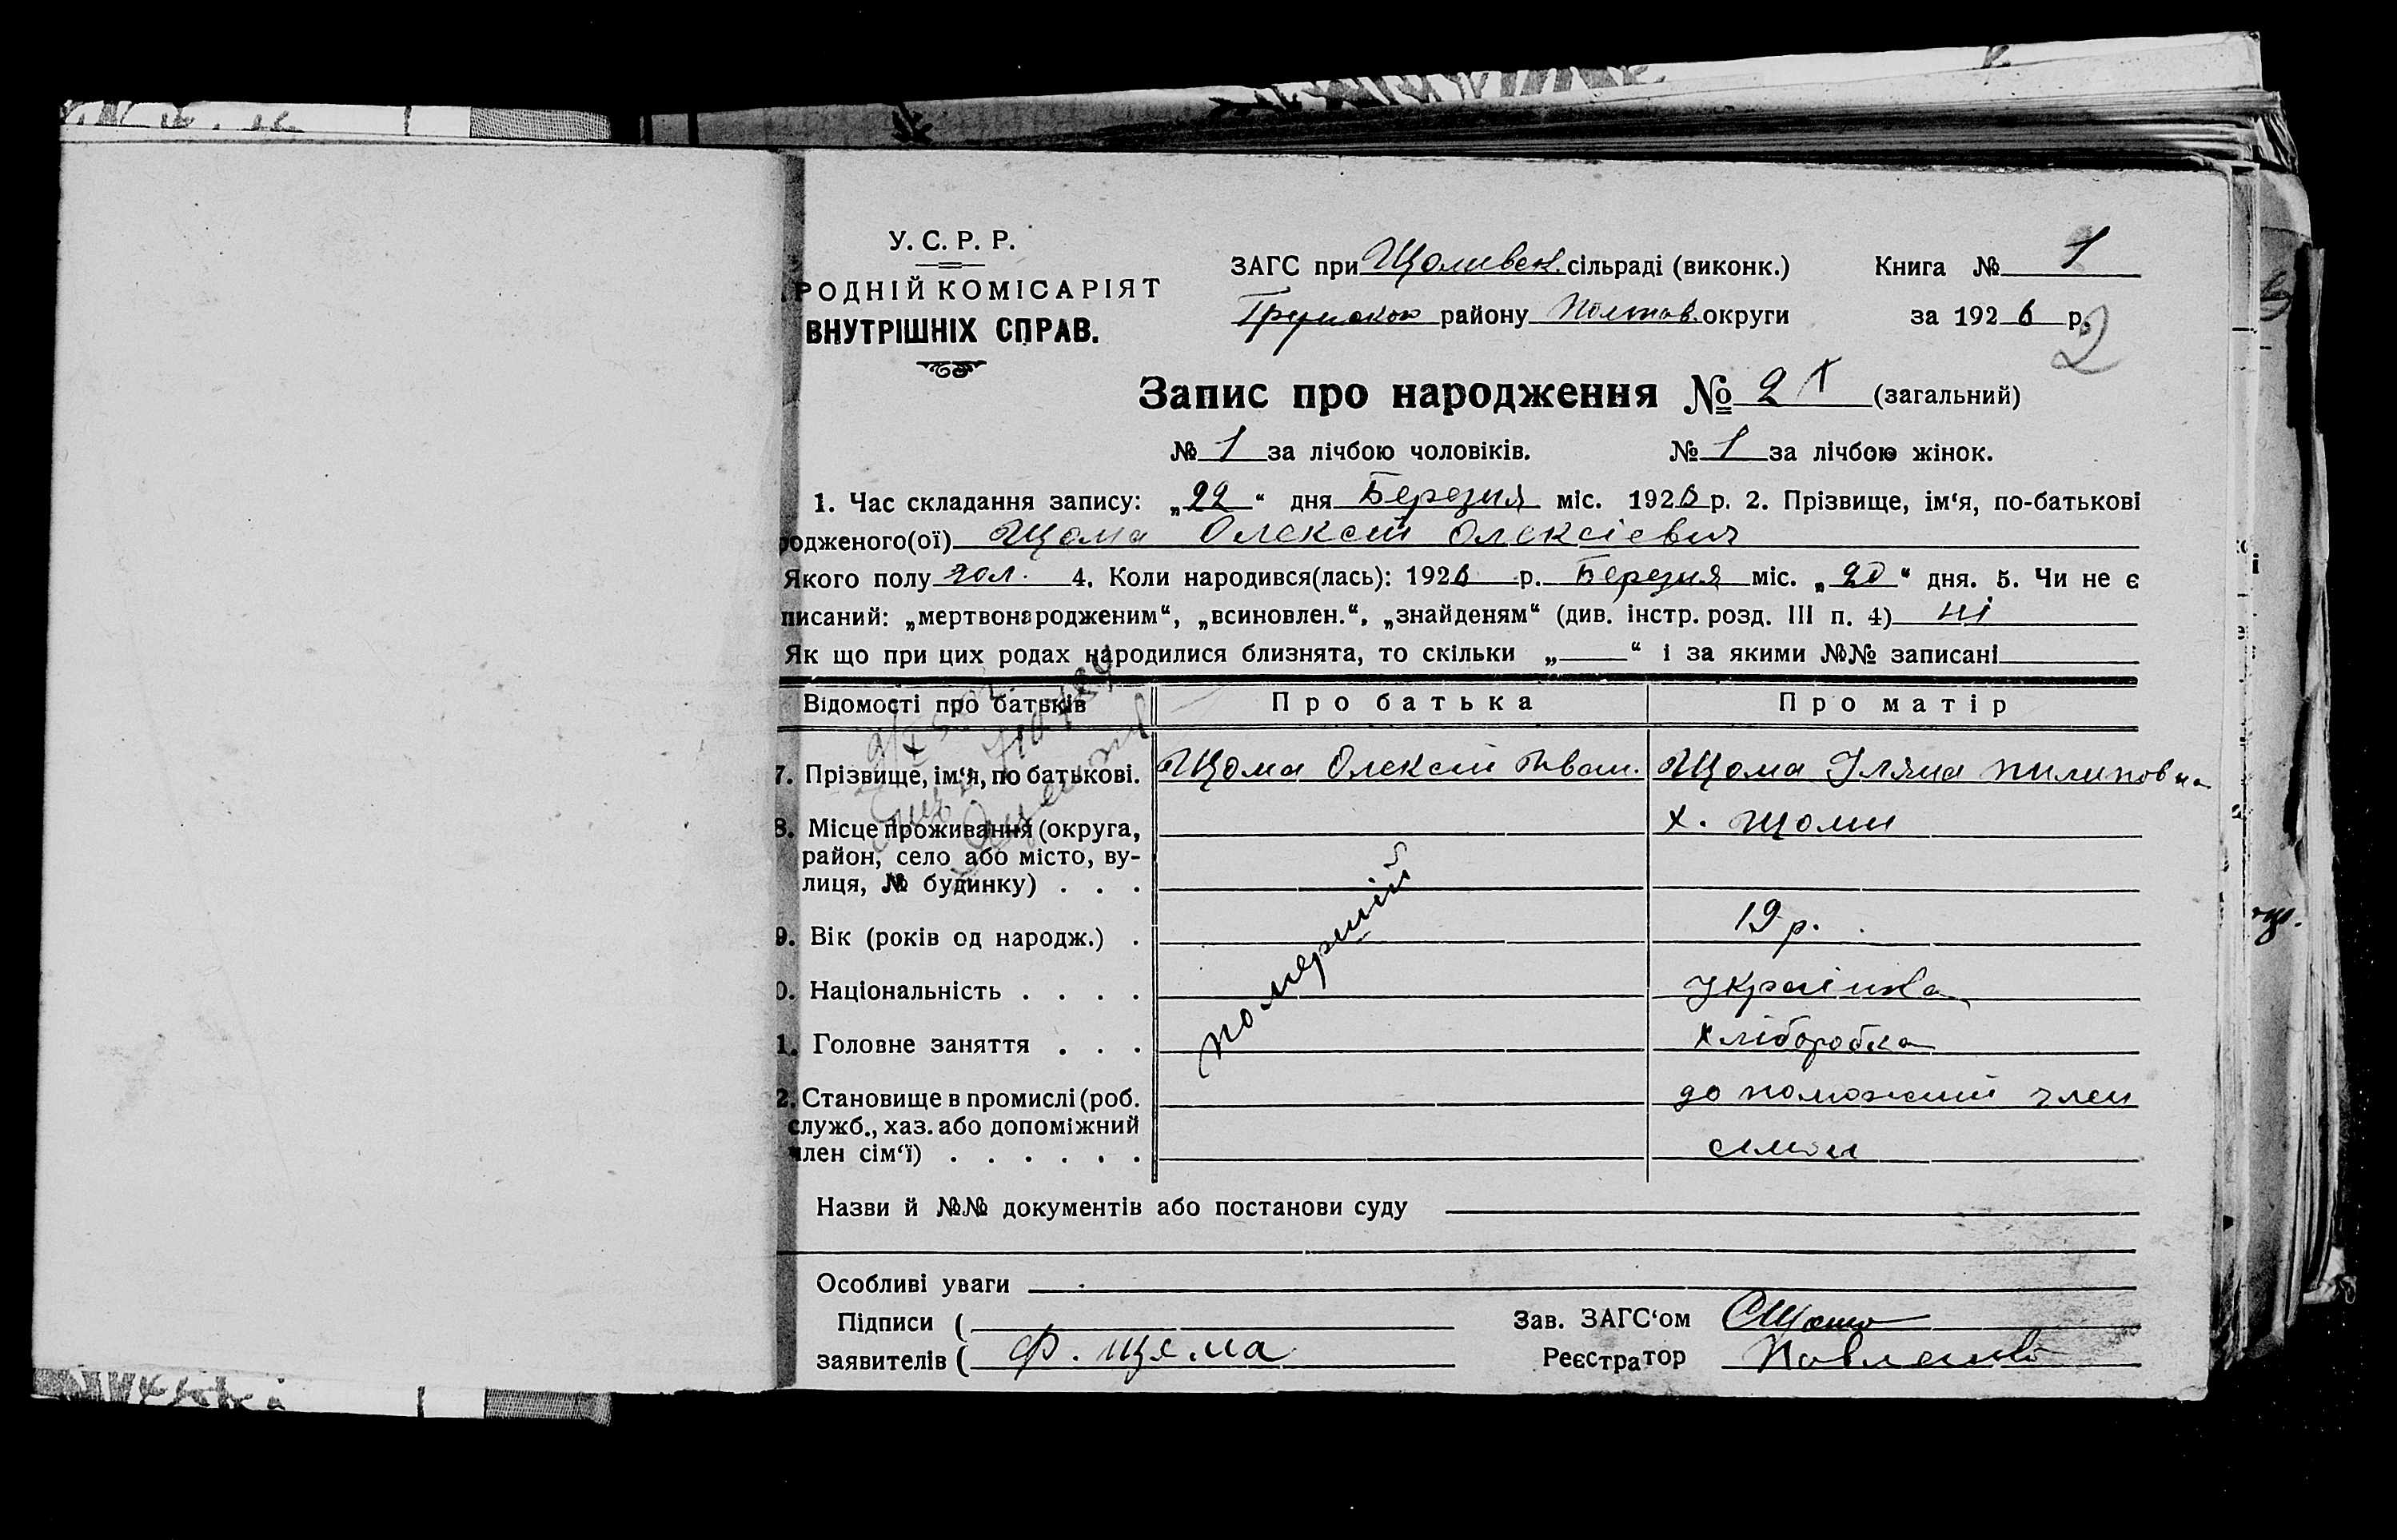 У. С. Р. Р.
РОДНІЙ КОМІСАРІЯТ
ВНУТРІШНІХ СПРАВ.
ЗАГС при Щомивськ. сільраді (виконк.) Книга № 1
району Полтав. округи за 1926 р.
2
Запис про народження № 2 (загальний)
№ 1 за лічбою чоловіків. № 1 за лічбою жінок.
1. Час складання запису: „22“ дня Березня міс. 1926 р. 2. Прізвище, ім‘я, по-батькові
родженого(ої) Щома Олексій Олексієвич
Якого полу чол. 4. Коли народився(лась): 1926 р. Березня міс. „20“ дня. 5. Чи не є
писаний: „мертвонародженим“, „всиновлен.“, „знайденям“ (див. інстр. розд. III п. 4) ні
Як що при цих родах народилися близнята, то скільки „ “ і за якими №№ записані
Відомості про батьків Про батька Про матір
7. Прізвище, ім‘я, по батькові. Щома Олексій Іван. Щома Уляна Пилиповна
8. Місце проживання (округа, х. Щоми
район, село або місто, ву-
лиця, № будинку) . . .
9. Вік (років од народж.) . 19 р.
0. Національність . . . . Українка
1. Головне заняття . . . хліборобка
помершій
2. Становище в промислі (роб. до поможний член
служб., хаз. або допоміжний
член сім‘ї) . . . . . . сімьи
Назви й №№ документів або постанови суду
Особливі уваги
Підписи ( Зав. ЗАГС‘ом СЩома
заявителів ( Ф. Щема Реєстратор Павленко